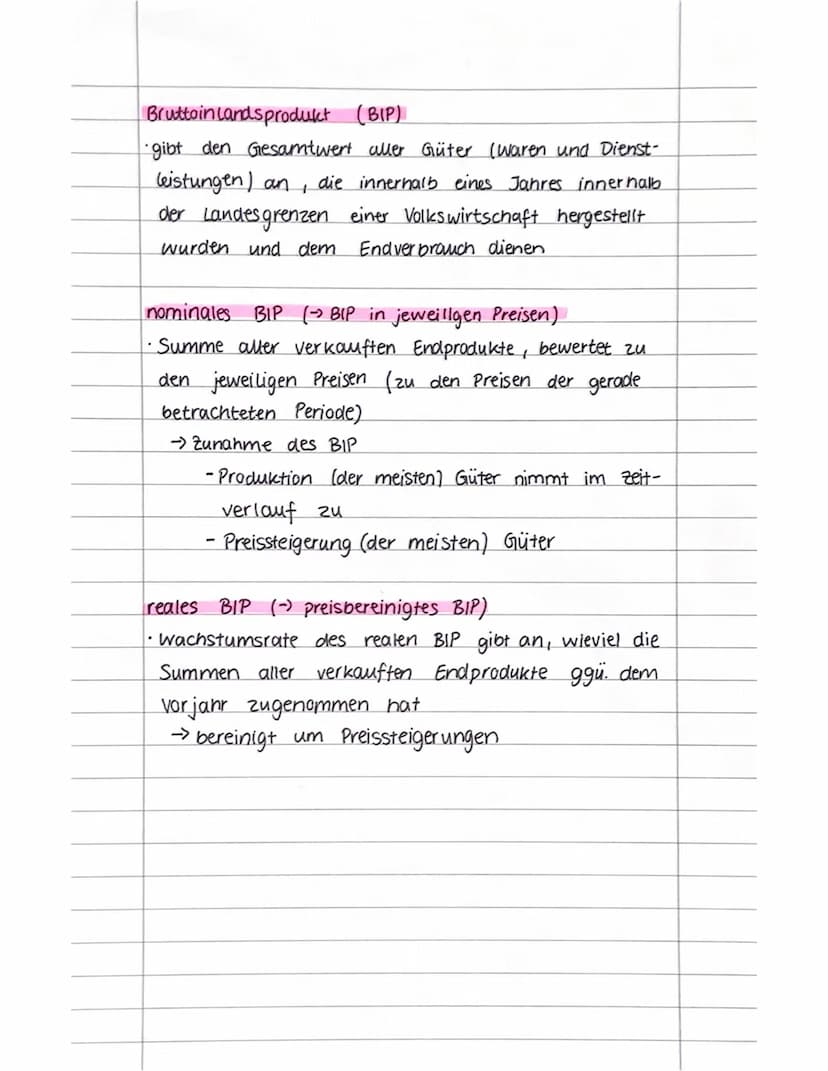 Bruttoinlandsprodukt (BIP)
· gibt den Gesamtwert aller Güter (Waren und Dienst-
leistungen) an, die innerhalb eines Jahres innerhalb
der Landesgrenzen einer Volkswirtschaft hergestellt
wurden und dem Endverbrauch dienen
nominales BIP (→ BIP in jeweiligen Preisen)
· Summe aller verkauften Endprodukte, bewertet zu
den jeweiligen Preisen (zu den Preisen der gerade
betrachteten Periode)
→ Zunahme des BIP
- Produktion (der meisten) Güter nimmt im Zeit-
verlauf zu
- Preissteigerung (der meisten) Güter
reales BIP (→ preisbereinigtes BIP)
· Wachstumsrate des realen BIP gibt an, wieviel die
Summen aller verkauften Endprodukte ggü. dem
Vorjahr zugenommen hat
→ bereinigt um Preissteigerungen